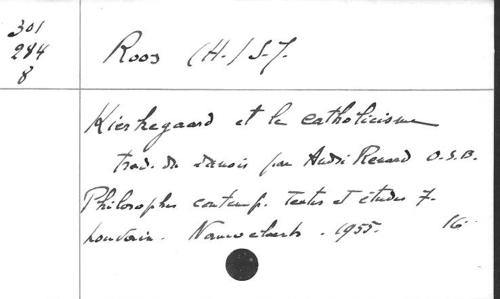 301
284
8
Roos (H.) S.J.
Kierkegaard et le catholicisme
trad. du danois par André Renard O.S.B.
Philosophes contemp. Textes et études 7.
Louvain. Nauwelaerts. 1955. 16